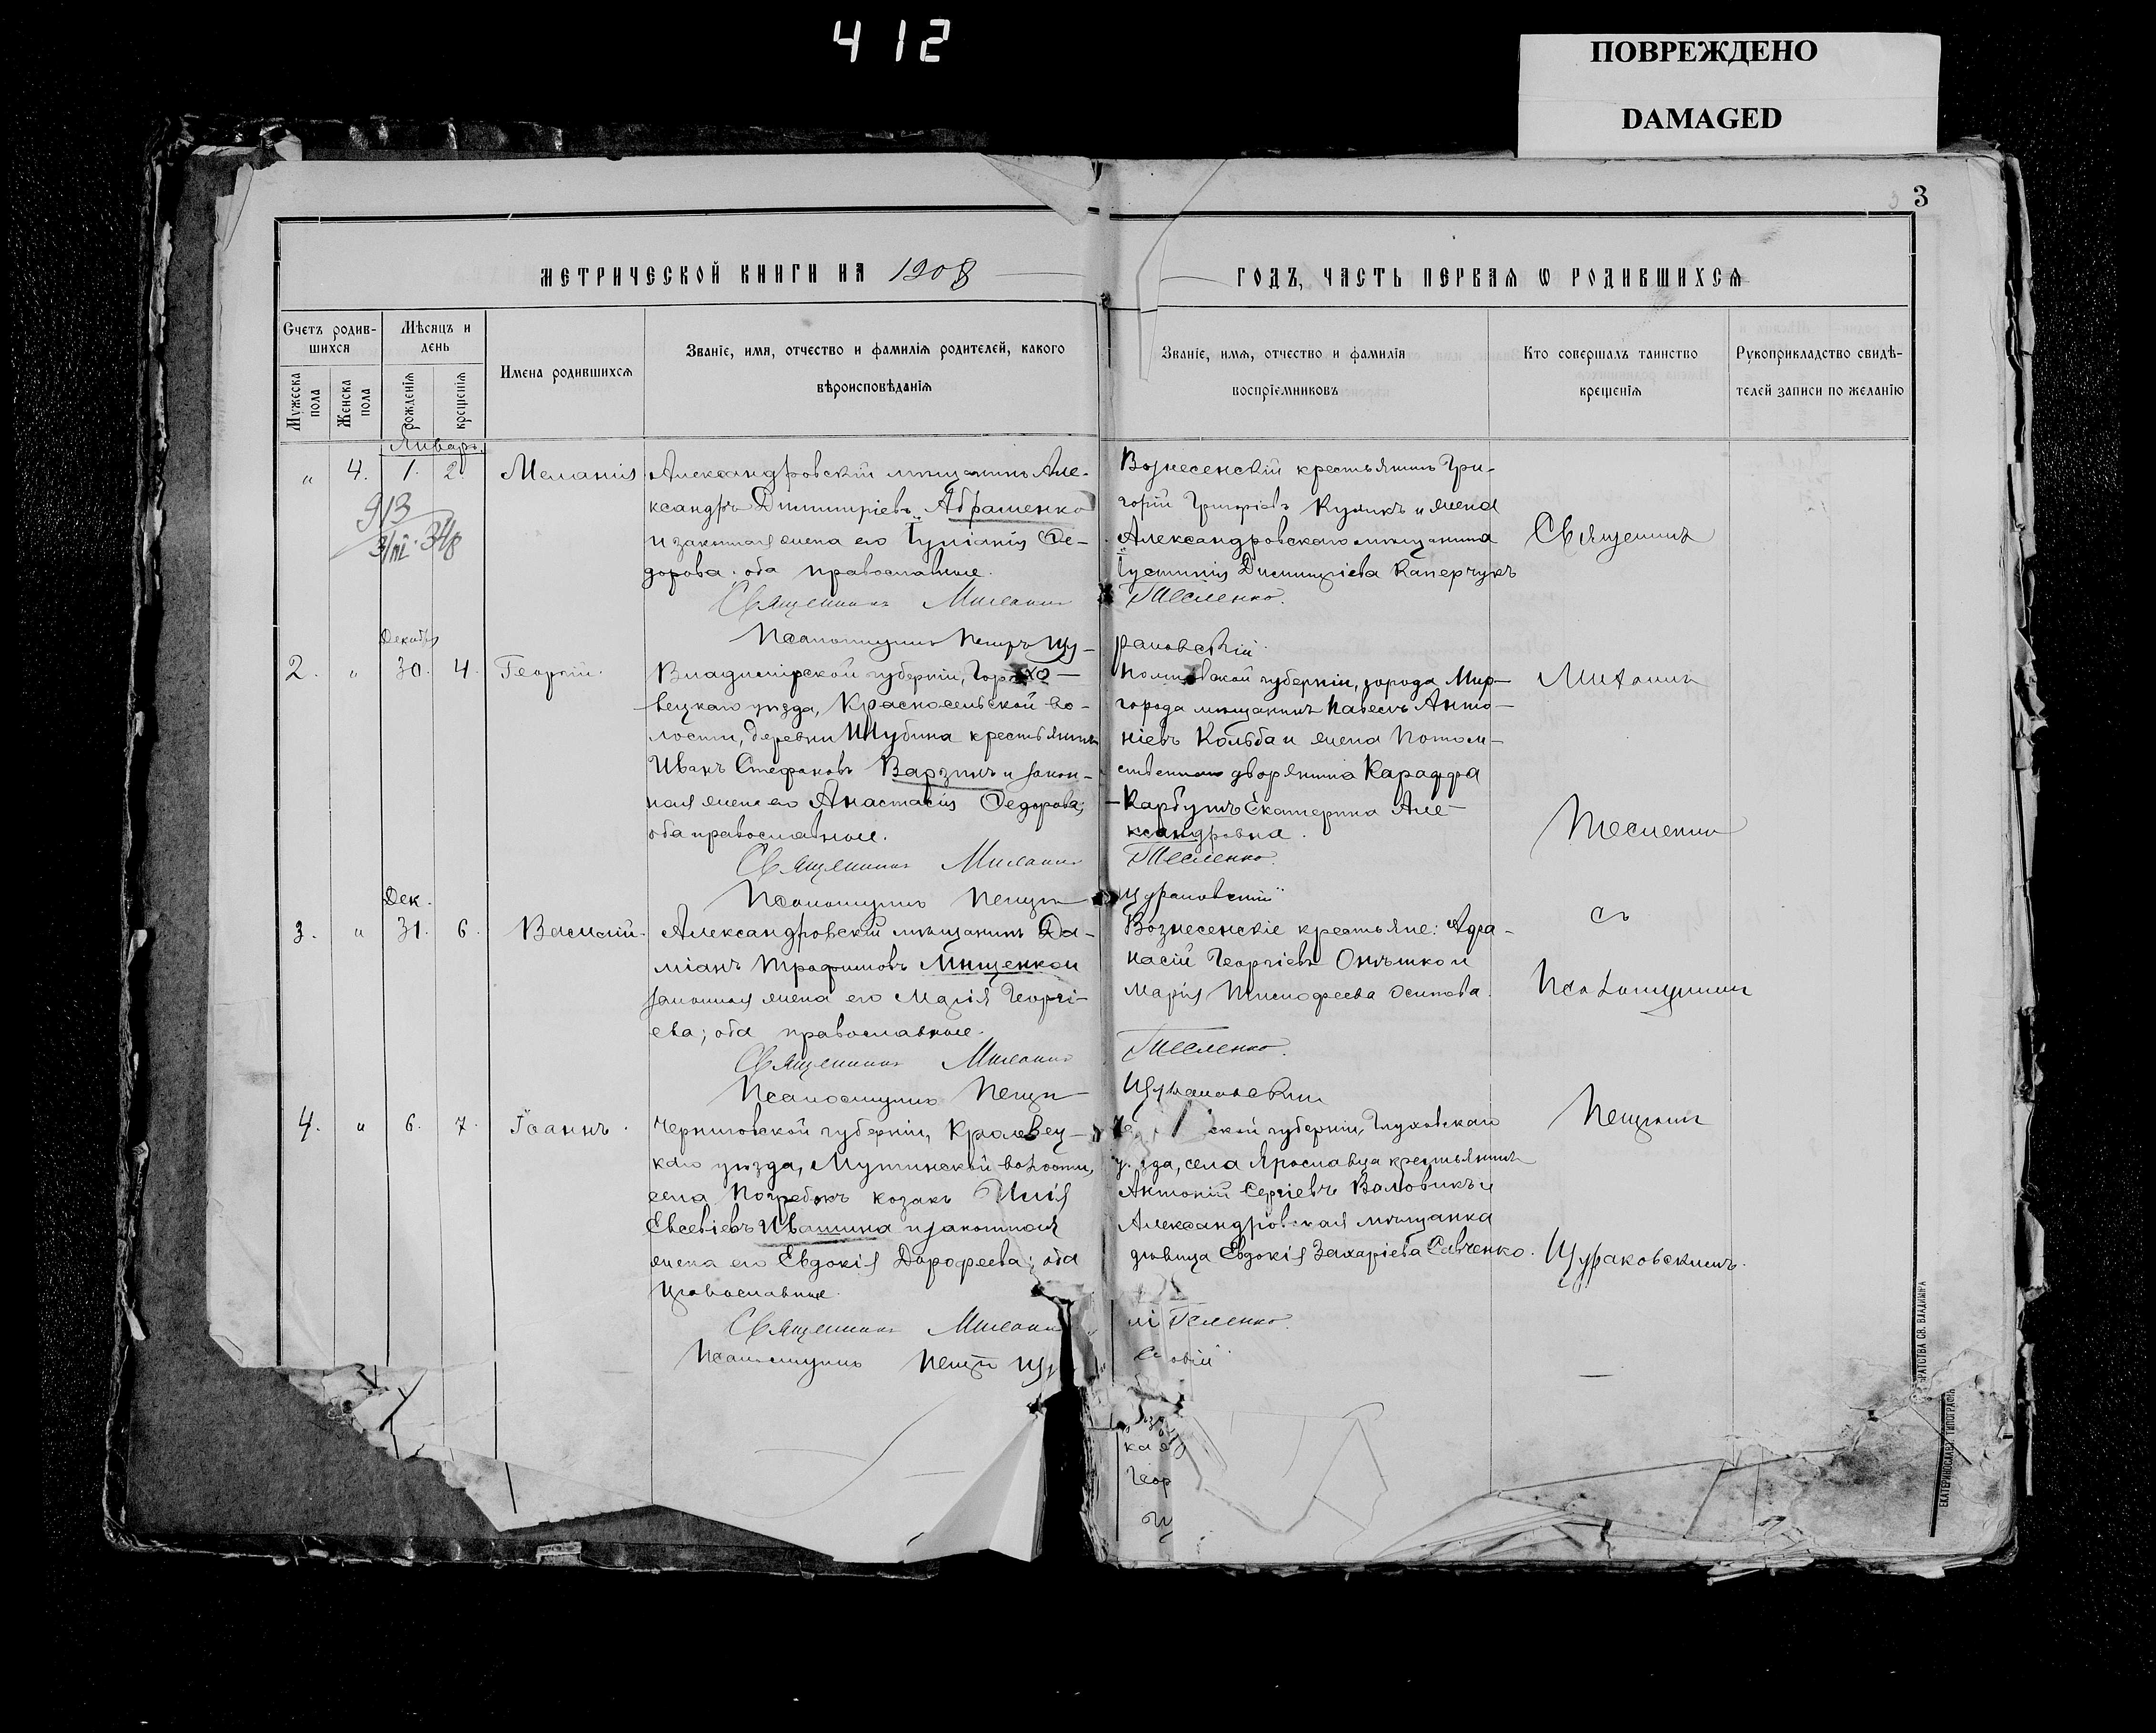 412
ПОВРЕЖДЕНО
DAMAGED
3
МЕТРИЧЕСКОЙ КНИГИ НА 1908
ГОДЪ, ЧАСТЬ ПЕРВАЯ Ѡ РОДИВШИХСЯ
Счетъ родив-
шихся
Мужеска пола
Женска пола
Мѣсяцъ и
день
рожденія
крещенія
Имена родившихся
Званіе, имя, отчество и фамилія родителей, какого
вѣроисповѣданія
Званіе, имя, отчество и фамилія
воспріемниковъ
Кто совершалъ таинство
крещенія
Рукоприкладство свидѣ-
телей записи по желанію
Январь
" 4. 1. 2. Меланія
913
Александровскій мѣщанинъ Але-
ксандръ Димитріевъ Абраменко
и законная жена его Іуліанія Ѳе-
дорова. оба православные.
Священникъ Михаилъ
Псаломщикъ Петръ Щу-
Вознесенскій крестьянинъ Гри-
горій Григоріевъ Куликъ и жена
Александровскаго мѣщанина
Іустинія Димитріева Каперчукъ
Тесленко.
раковскій.
Священникъ
Декабрь
2. " 30. 4. Георгій.
Владимірской губерніи, Горохо-
вецкаго уѣзда, Красносельской во-
лости, деревни Шубина крестьянинъ
Иванъ Стефановъ Варзинъ и закон-
ная жена его Анастасія Ѳедорова;
оба православные.
Священникъ Михаилъ
Псаломщикъ Петръ
Полтавской губерніи, города Мир-
города мѣщанинъ Павелъ Анто-
ніевъ Кольба и жена потом-
ственнаго дворянина Караффа
-Карбутъ Екатерина Але-
ксандровна.
Тесленко.
Щураковскій
Михаилъ
Тесленко
Дек.
3. " 31. 6. Василій.
Александровскій мѣщанинъ Да-
міанъ Трофимовъ Мищенко и
законная жена его Марія Георгі-
ева; оба православные.
Священникъ Михаилъ
Псаломщикъ Петръ
Вознесенскіе крестьяне: Аѳа-
насій Георгіевъ Онышко и
Марія Тимофеева Осипова.
Тесленко.
Щураковскій
съ
Псаломщикомъ
4. " 6. 7. Іоаннъ.
Черниговской губерніи, Кролевец-
каго уѣзда, Мутинской волости,
села Погребокъ козакъ Илія
Евсевіевъ Ивашина и законная
жена его Евдокія Дорофеева; оба
православные.
Священникъ Михаилъ
Псаломщикъ Петръ Щу
ской губерніи, Глуховскаго
уѣзда, села Ярославца крестьянинъ
Антоній Сергіевъ Воловикъ и
Александровская мѣщанка
дѣвица Евдокія Захаріева Савченко.
Тесленко.
овскій
Петромъ
Щураковскимъ.
ка
Геор
БРАТСТВА СВ. ВЛАДИМІРА
ЕКАТЕРИНОСЛАВЪ. ТИПОГРАФІЯ